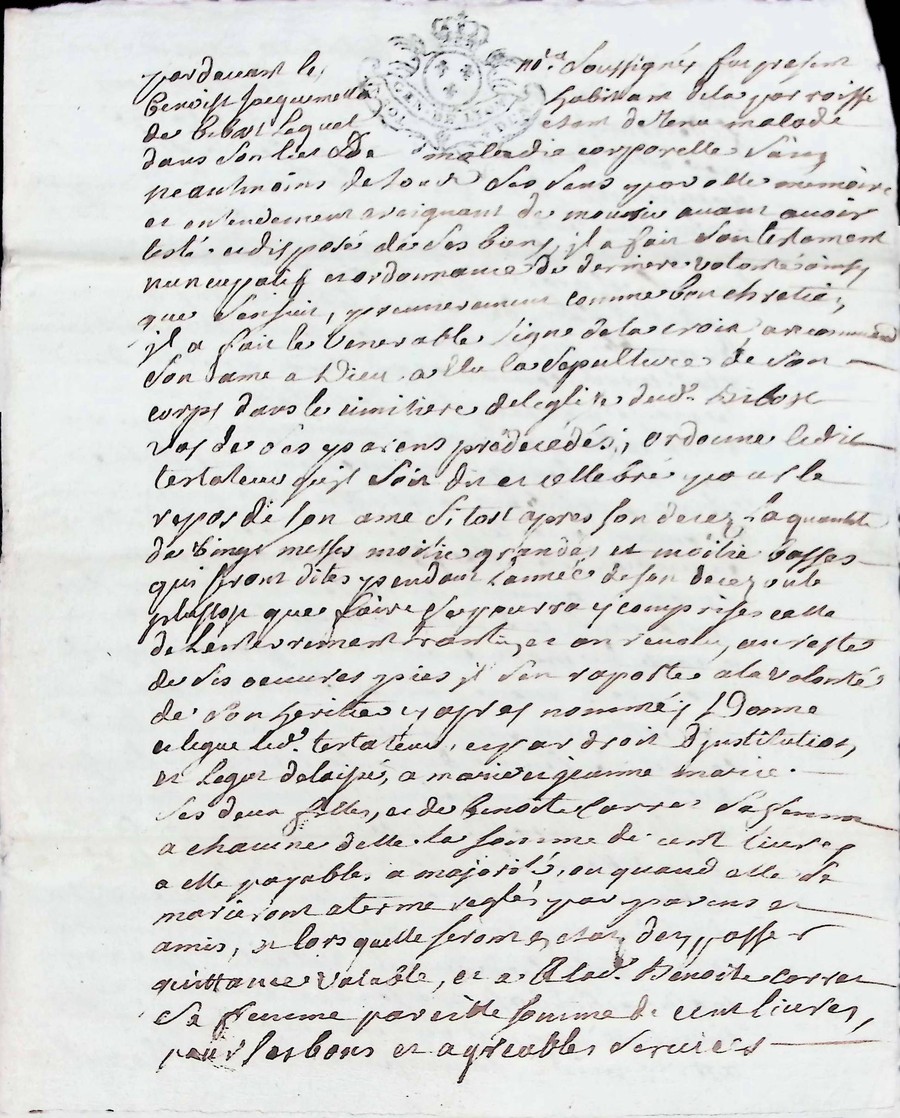 pardevant le no.re Soussigné fut present
Benoist Jacquemetta habitant de la parroisse
de estant detenu malade
dans Son lict De maladie corporelle Sain
neaulmoins de tous Ses Sens parolle memoire
et entendement craignant de mourir avant avoir
testé et disposé de Ses biens, il a fait Son testament
nuncupatif et ordonnance de derniere volonté ainsy
que S'ensuit, premierement comme bon chretien,
il a fait le venerable Signe de la croix, a recommandé
Son ame a Dieu a Elu la Sepulture de Son
corps dans le cimitiere de l'eglise dud.t
vas de Ses parens prédecédés, ordonne ledit
testateur qu'il Soit dit et cellebré pour le
repos de Son ame Sitost apres Son decez La quantité
de vingt messes moitié grandes et moitié basses
qui Seront dites pendant l'année de Son decez ou le
plustost que faire Se pourra y comprises celle
de L'enterrement et an revolu, au reste
de Ses oeuvres pies il S'en raporte a la volonté
de Son heritie cy apres nommé, Donne
et legue led.t testateur, et par droit D'institution,
et Legat delaissé, a marie et jeanne marie
Ses deux filles, et de Benoite Corra Sa femme
a chacune d'elle la Somme de cent livres
a elle payable a majorité, ou quand elle Se
marieront a terme reglés par parens et
amis, et lors quelle Seront en etat d'en passer
quittance valable, et a Elad.t Benoite Corra
Sa femme pareille Somme de cent livres,
pour les bons et agreables Services